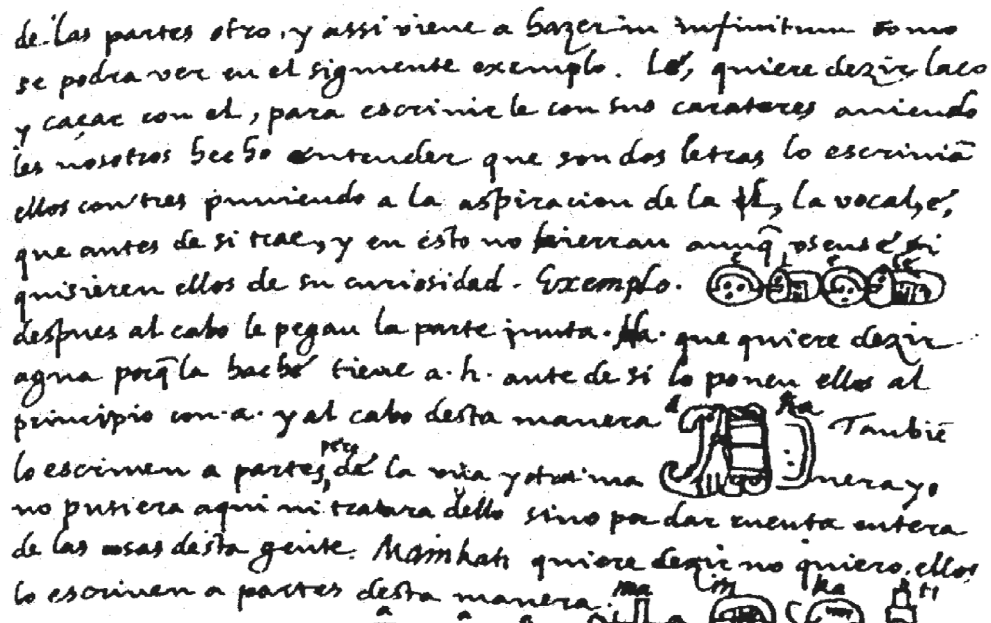 de las partes otro, y assi viene a hazer in infinitum como
se podra ver en el siguiente exemplo. Lé, quiere dezir laço
y caçar con el, para escrivir le con sus carateres aviendo
les nosotros hecho entender que son dos letras lo escrivian
ellos con tres puniendo a la aspiracion de la l, la vocal, é,
que antes de si trae, y en esto no hierran aunq̃ usense si
quisieren ellos de su curiosidad. Exemplo. e l e lé
despues al cabo le pegan la parte junta. Ha. que quiere dezir
agua porq̃ la hache tiene a. h. ante de si lo ponen ellos al
principio con a. y al cabo desta manera a ha Tambiẽ
lo escriven a partes, pero de la una y otra ma nera yo
no pusiera aqui ni tratara dello sino por dar cuenta entera
de las cosas desta gente. Mainkati quiere dezir no quiero, ellos
lo escriven a partes desta manera. ma in ka ti